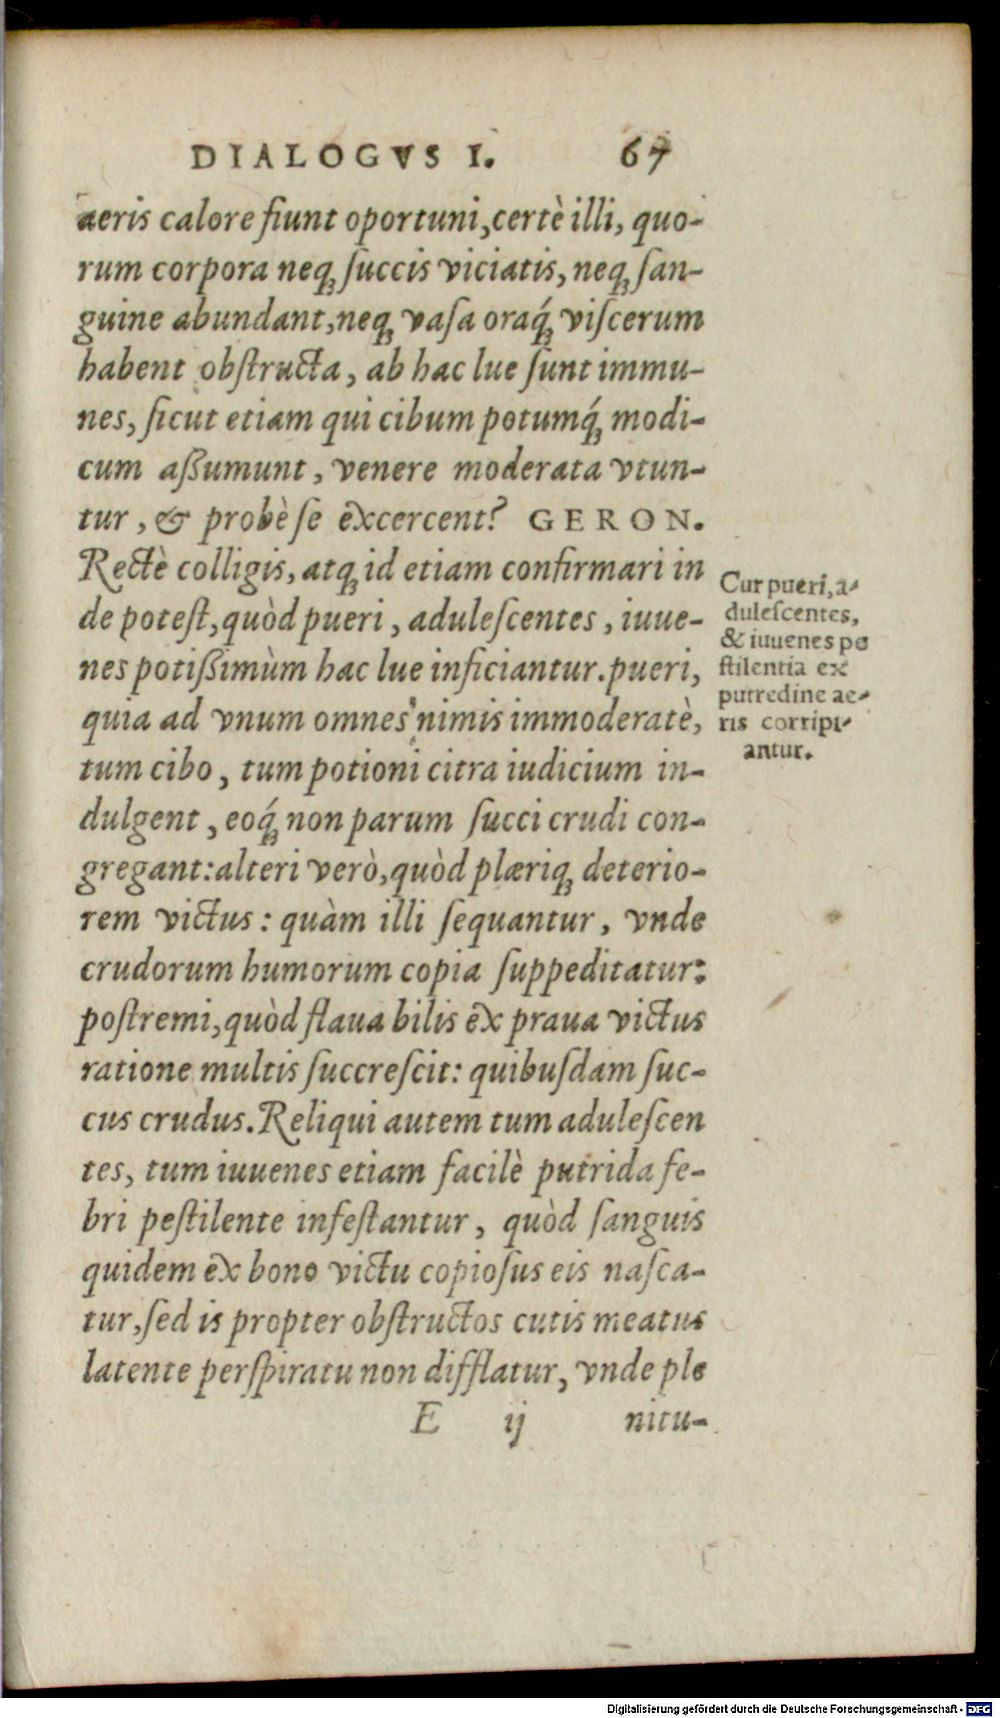 DIALOGVS I. 67
aeris calore fiunt oportuni, certè illi, quo-
rum corpora neqꝫ ſuccis viciatis, neqꝫ ſan-
guine abundant, neqꝫ vaſa oraq́ꝫ viſcerum
habent obſtructa, ab hac lue ſunt immu-
nes, ſicut etiam qui cibum potumq́ꝫ modi-
cum aßumunt, venere moderata vtun-
tur, & probè ſe excercent? GERON.
Rectè colligis, atqꝫ id etiam confirmari in
de poteſt, quòd pueri, aduleſcentes, iuue-
nes potißimùm hac lue inficiantur. pueri,
quia ad vnum omnes nimis immoderatè,
tum cibo, tum potioni citra iudicium in-
dulgent, eoq́ꝫ non parum ſucci crudi con-
gregant: alteri verò, quòd plæriqꝫ deterio-
rem victus: quàm illi ſequantur, vnde
crudorum humorum copia ſuppeditatur:
poſtremi, quòd flaua bilis ex praua victus
ratione multis ſuccreſcit: quibuſdam ſuc-
cus crudus. Reliqui autem tum aduleſcen
tes, tum iuuenes etiam facilè putrida fe-
bri peſtilente infeſtantur, quòd ſanguis
quidem ex bono victu copioſus eis naſca-
tur, ſed is propter obſtructos cutis meatus
latente perſpiratu non difflatur, vnde ple
E ij nitu-
Cur pueri, a-
duleſcentes,
& iuuenes pe
ſtilentia ex
putredine ae-
ris corripi-
antur.
Digitalisierung gefördert durch die Deutsche Forschungsgemeinschaft - DFG